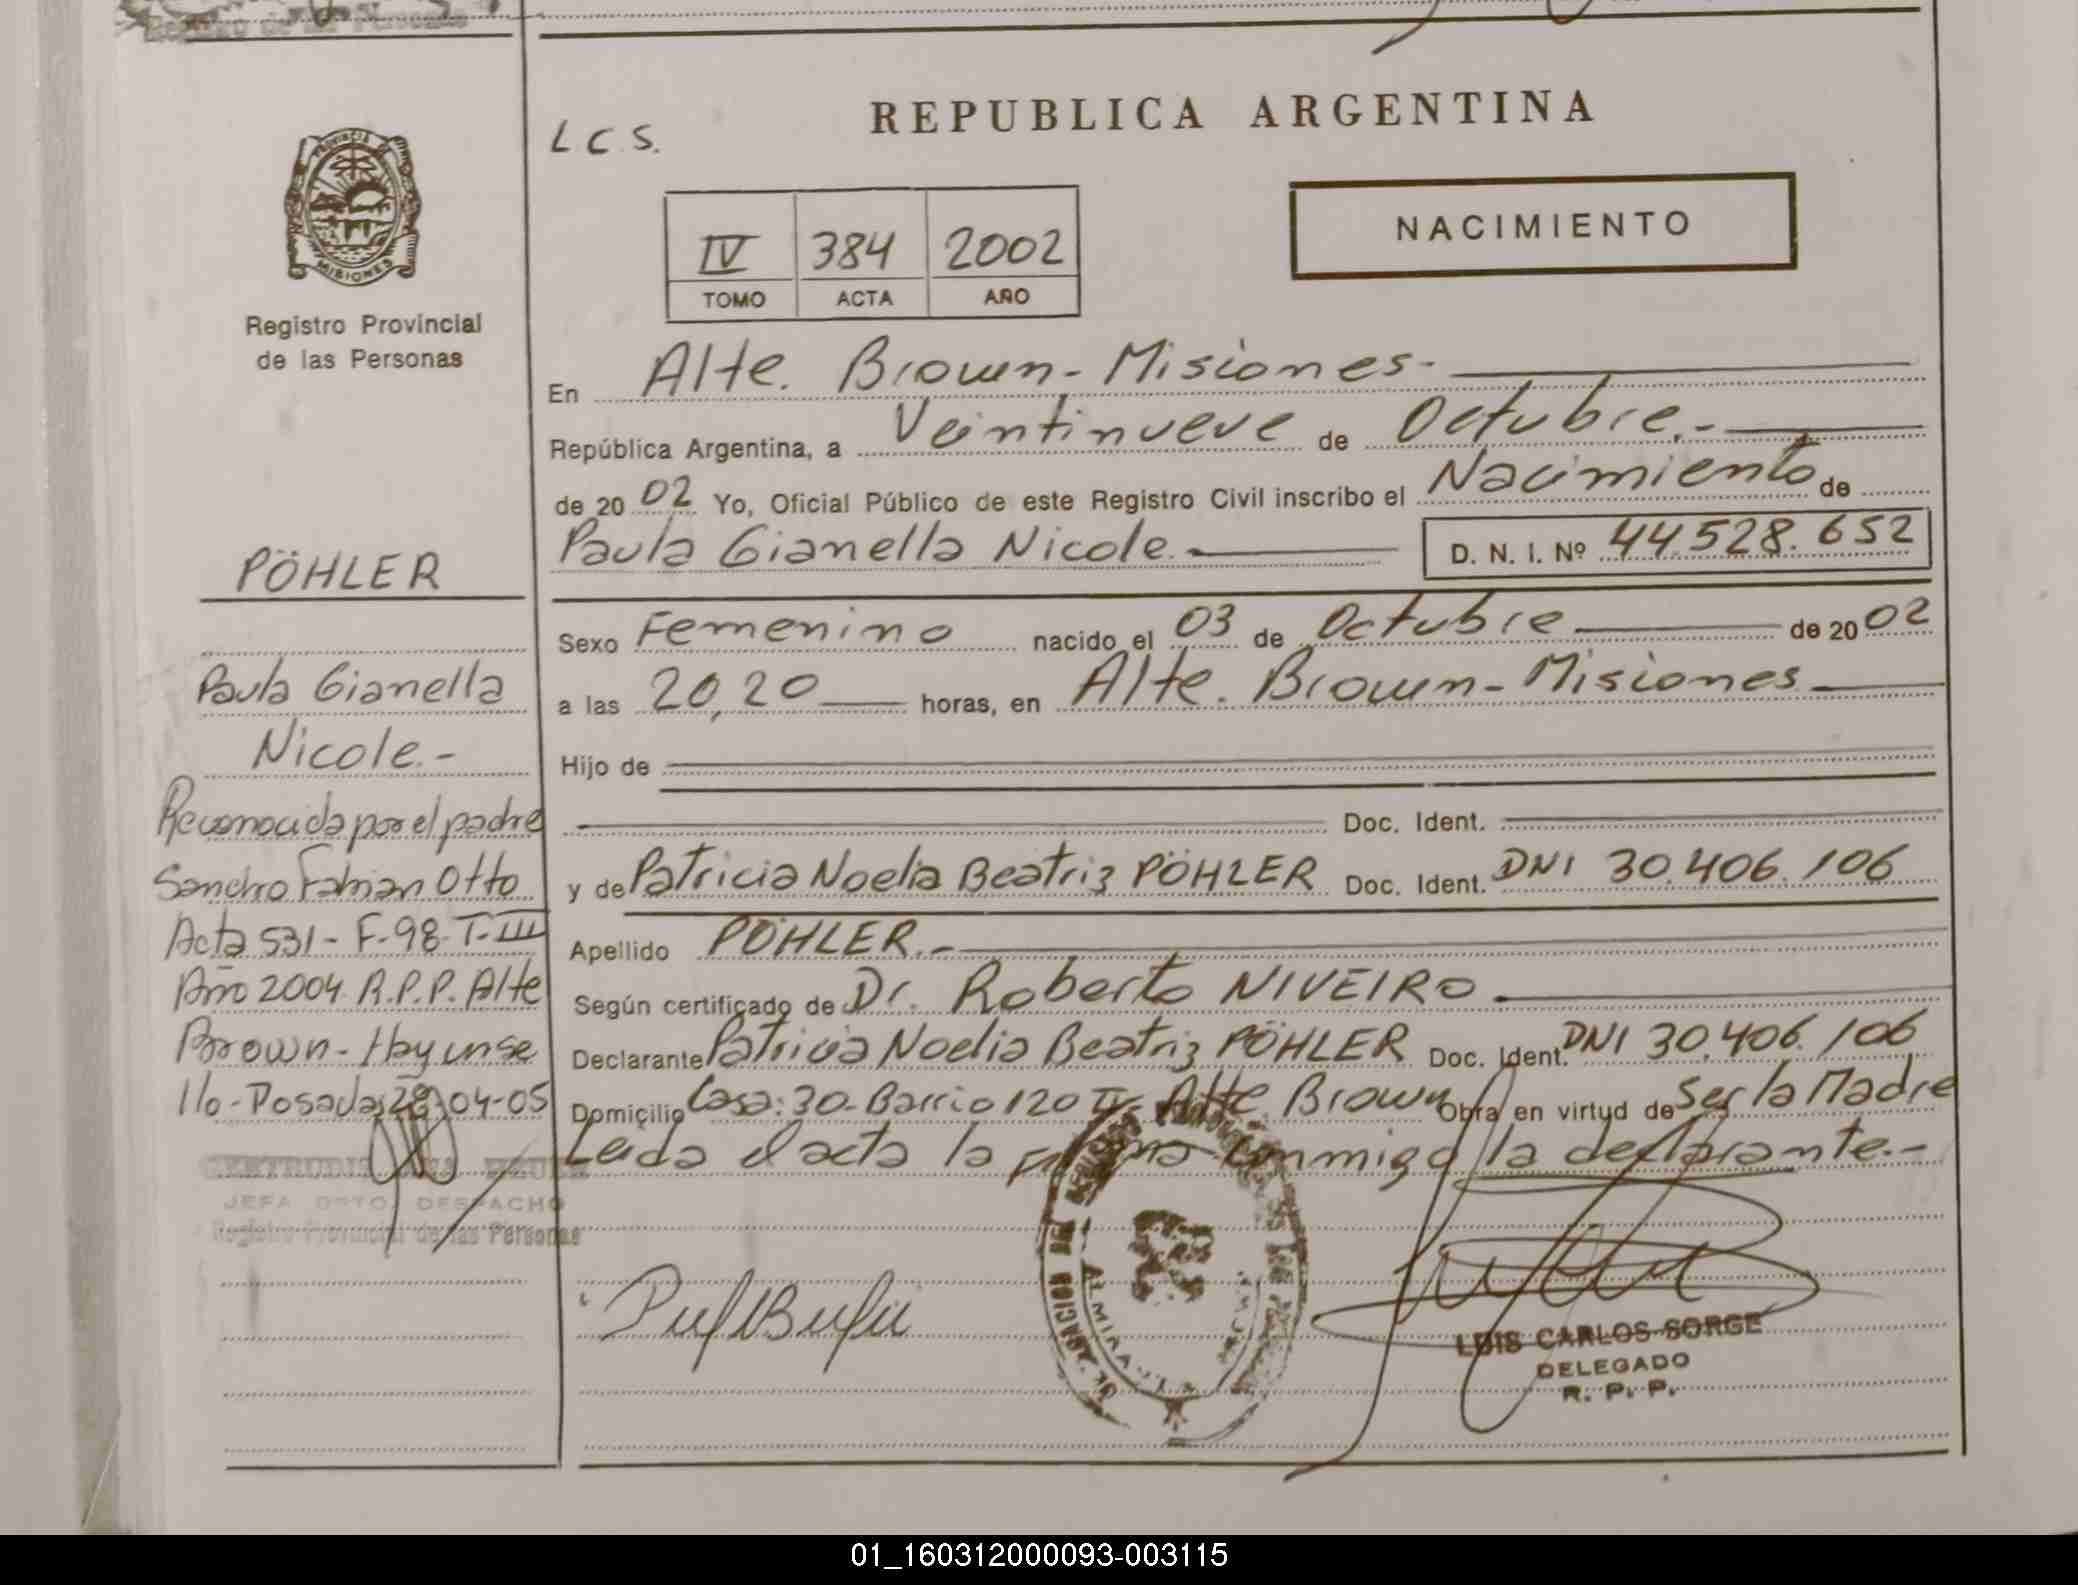 L C S.
REPUBLICA ARGENTINA
IV 384 2002
TOMO ACTA AÑO
NACIMIENTO
PROVINCIA DE
MISIONES
Registro Provincial
de las Personas
En Alte. Brown - Misiones -
República Argentina, a Veintinueve de Octubre.-
de 20 02 Yo, Oficial Público de este Registro Civil inscribo el Nacimiento de
Paula Gianella Nicole. D. N. I. Nº 44.528.652
Sexo Femenino nacido el 03 de Octubre de 20 02
a las 20,20 horas, en Alte. Brown - Misiones
Hijo de
Doc. Ident.
y de Patricia Noelia Beatriz PÖHLER Doc. Ident. DNI 30.406.106
Apellido PÖHLER.-
Según certificado de Dr. Roberto NIVEIRO.
Declarante Patricia Noelia Beatriz PÖHLER Doc. Ident. DNI 30.406.106
Domicilio Casa: 30 - Barrio 120 Alte. Brown Obra en virtud de Ser la Madre
Leida el acta la firma conmigo la declarante.-
LUIS CARLOS SORGE
DELEGADO
R. P. P.
PÖHLER
Paula Gianella
Nicole.-
Reconocida por el padre
Sandro Fabian Otto
Acta 531 - F-98-T-III
Año 2004 R.P.P. Alte
Brown - Hay un se
llo - Posadas, 28-04-05
JEFA DPTO. DESPACHO
Registro Provincial de las Personas
01_160312000093-003115